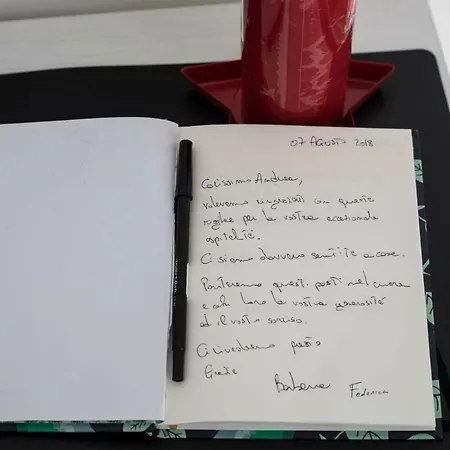 07 AGOSTO 2018
Carissimo Andrea,
volevamo ringraziarvi con queste
righe per la vostra eccezionale
ospitalità.
Ci siamo davvero sentite a casa.
Porteremo questi posti nel cuore
e con loro la vostra generosità
ed il vostro sorriso.
Ci rivedremo presto
Grazie
Barbara Federica